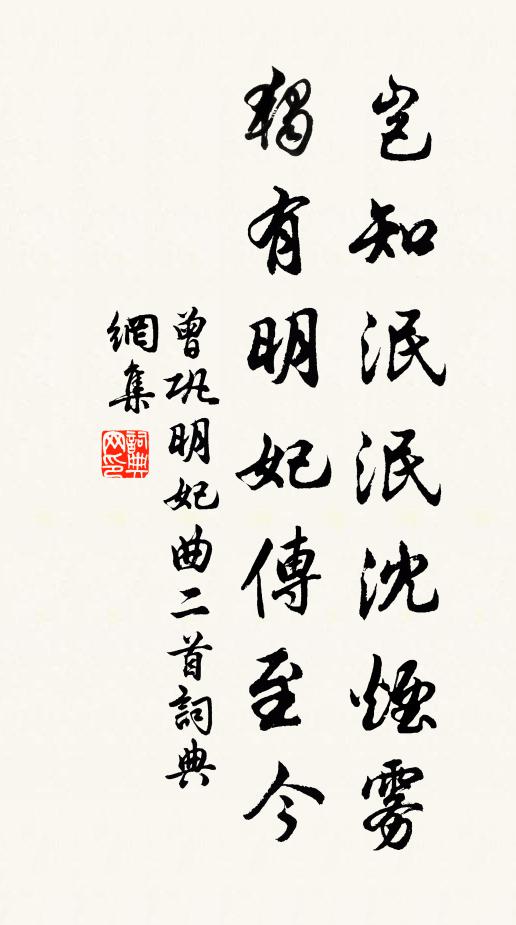 豈知泯泯沈煙霧
獨有明妃傳至今
曾巩明妃曲二首詞典
網集
詞典
网印